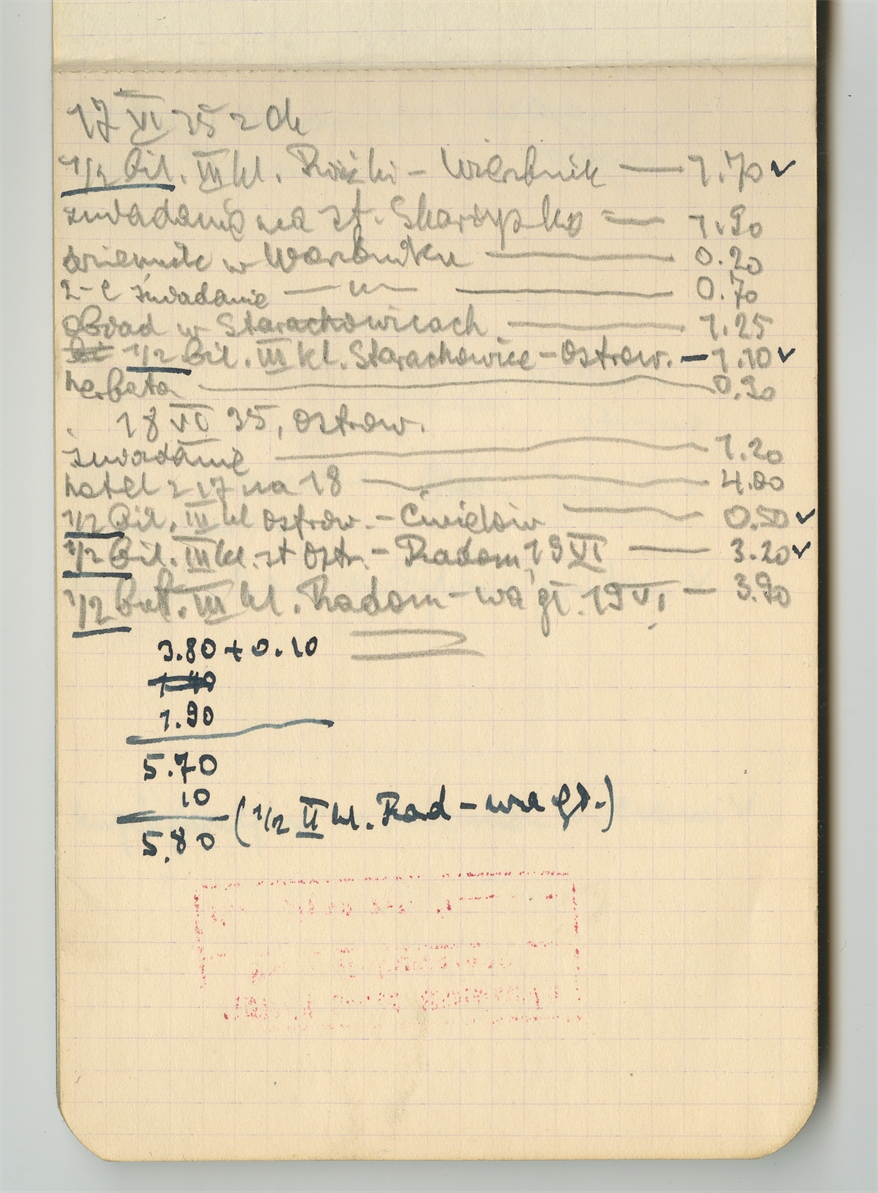 17 VI 35 z dn
1/2 bil. III kl. Rożki – Wierzbnik — 1.70 ✓
śniadanie na st. Skarżysko — 1.90
dziennik w Wierzbniku — 0.20
2-e śniadanie — " — — 0.70
obiad w Starachowicach — 1.25
1/2 bil. III kl. Starachowice – Ostrow. — 1.10 ✓
herbata — 0.30
18 VI 35, Ostrow.
śniadanie — 1.20
hotel z 17 na 18 — 4.00
1/2 bil. III kl Ostrow. – Ćmielów — 0.50 ✓
1/2 bil. III kl. st Ostr. – Radom 19 VI — 3.20 ✓
1/2 bil. III kl. Radom – Wa gł. 19 VI — 3.90
3.80 + 0.10
1.90
5.70
10
5.80 (1/2 II kl. Rad – wa gł.)